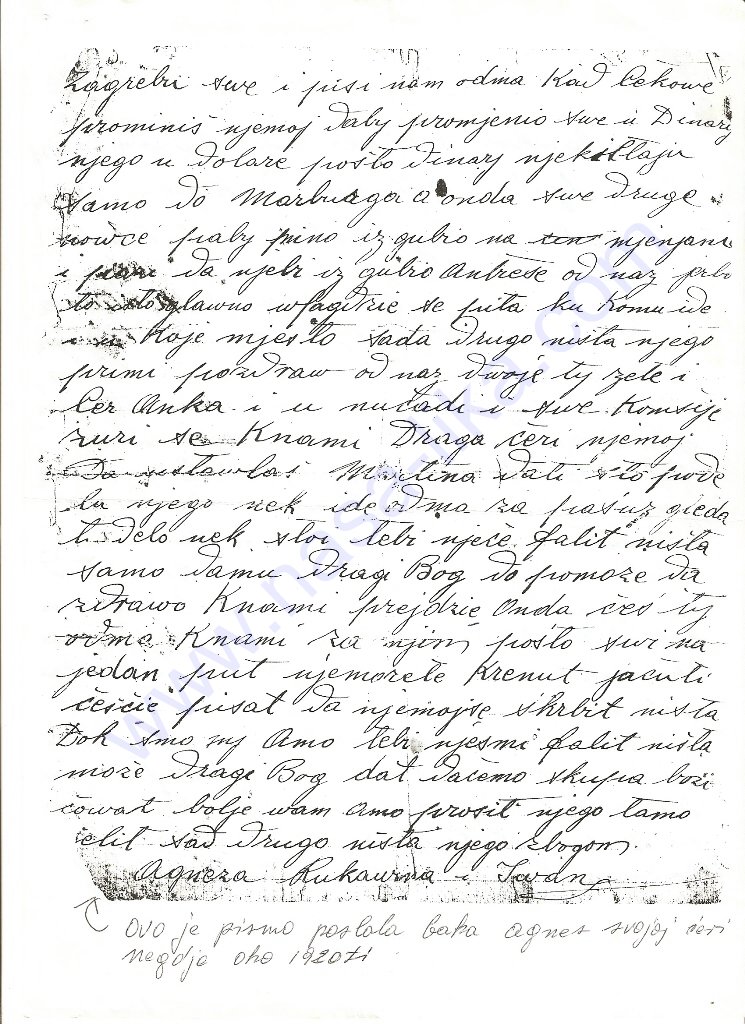 Zagrebu swe i pisi nam odma Kad Čekowe
prominiš njemoj daby promjenio swe u Dinary
njego u dolare pošto dinary nje
samo do Marburga a onda swe druge
nowce paby izgubio na mjenjani
i da njebi izgubio Antrese od naz
to wšagdzie se pita ku Komu ide
i Koje mjesto sada drugoništa njego
primi pozdraw od naz dwoje ty zete i
Čer Anka i u nučadi i swe Komšije
zuri se Knami Draga čeri njemoj
Da ustawlaš Martina dati što
lu njego nek ide odma za pasuz gleda
t delo nek stoi tebi nječe falit ništa
samo damu dragi Bog do pomože da
zdrawo Knami prejdzie Onda češ ty
odma Knami za njim pošto swi na
jedan put njemorete Krenut jačuti
češčie pisat da njemojse skrbit ništa
Dok smo my Amo tebi njesmi falit ništa
može dragi Bog dat dačemo skupa boži
čowat bolje wam Amo prosit njego tamo
sad drugo ništa njego zbogom
Agneza Rukawina i Iwan
www.nasalika.com
Ovo je pismo poslala baka Agnes svojoj ćeri
negdje oko 1920ti